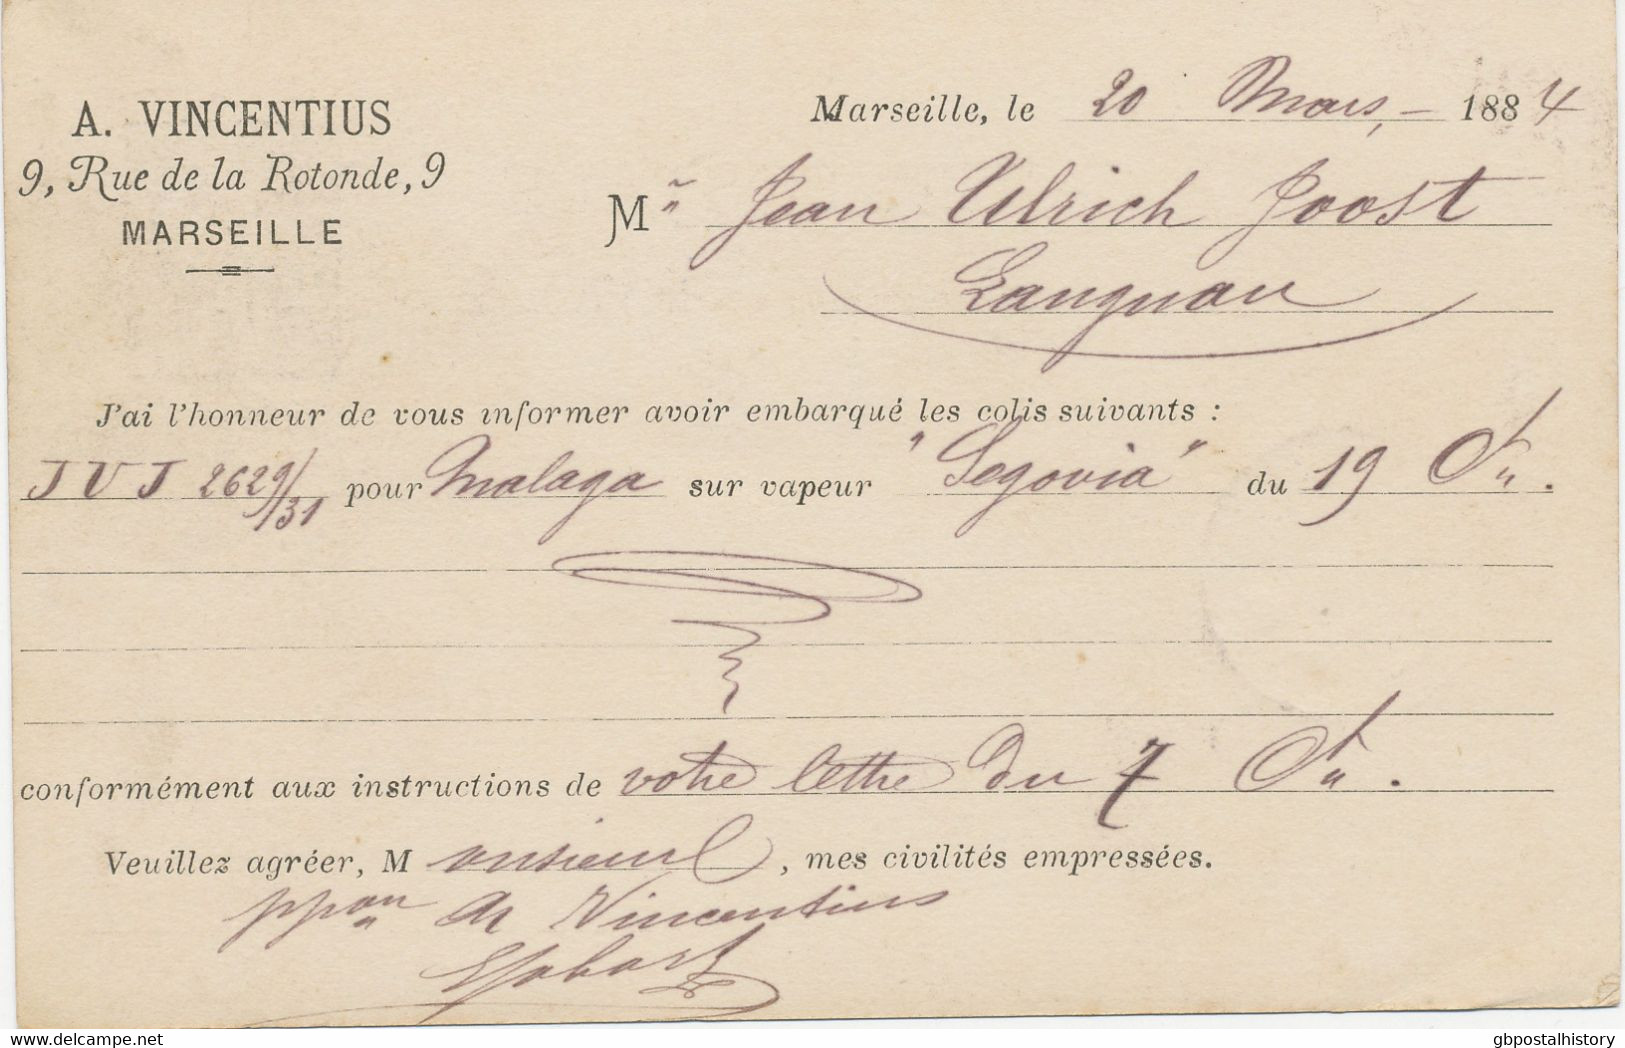 A. VINCENTIUS
9, Rue de la Rotonde, 9
MARSEILLE
Marseille, le 20 Mars, 1884
Mr Jean Ulrich Joost
Langnau
J'ai l'honneur de vous informer avoir embarqué les colis suivants :
JUJ 2629/31 pour Malaga sur vapeur "Segovia" du 19 Ct.
conformément aux instructions de votre lettre du 7 Ct.
Veuillez agréer, Monsieur, mes civilités empressées.
ppon A. Vincentius
gbpostalhistory
www.delcampe.net